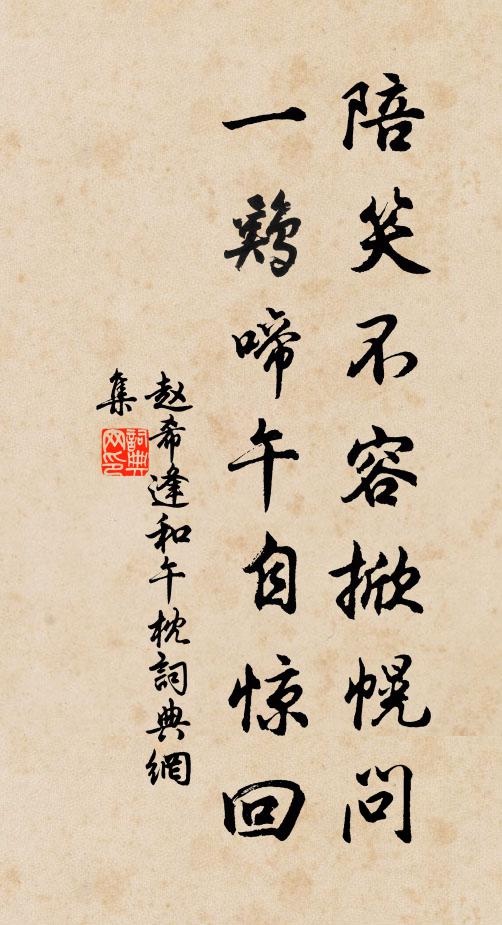 陪笑不容掀幌问
一鷄啼午自惊回
赵希逢和午枕詞典網
集
詞典
网印